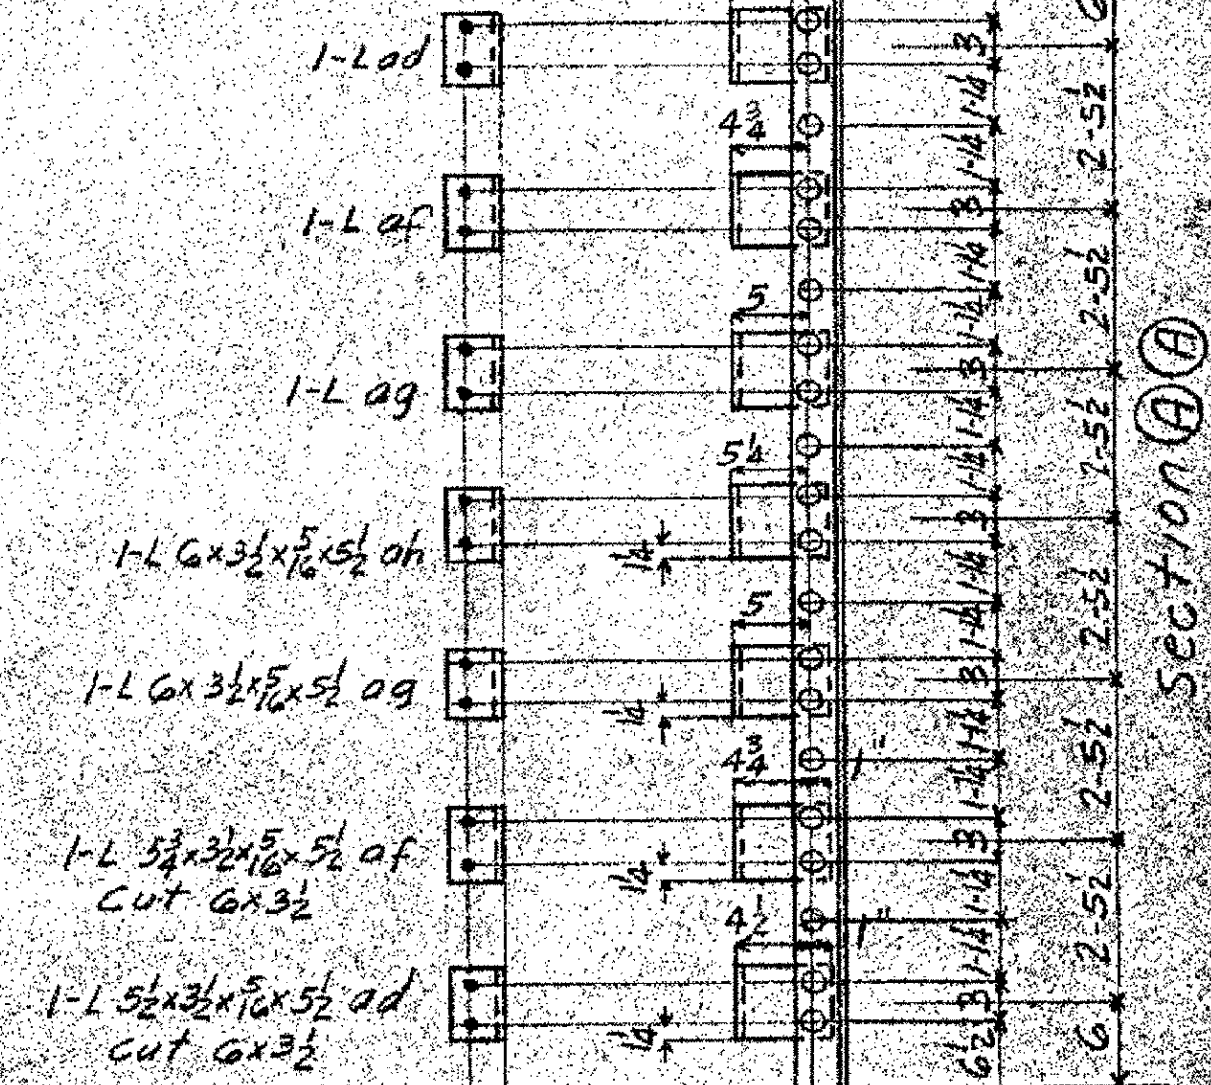 1-L ad
1-L af
1-L ag
1-L 6x3½x5/16x5½ ah
1-L 6x3½x5/16x5½ ag
1-L 5¾x3½x5/16x5½ af
Cut 6x3½
1-L 5½x3½x5/16x5½ ad
cut 6x3½
4¾
5
5¼
1¼
5
1¼
4¾
1"
1¼
4½
1"
1¼
3
1-1¼
1-1¼
3
1-1¼
1-1¼
3
1-1¼
1-1¼
3
1-1¼
1-1¼
3
1-1¼
1-1¼
3
1-1¼
1-1¼
3
6½
6
2-5½
2-5½
2-5½
2-5½
2-5½
2-5½
6
Section A A